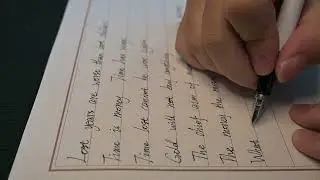 Lost years are worse than lost
Time is money Time has
Time lost cannot be won again
Gold will not buy anything
The chief aim of
The money the
What